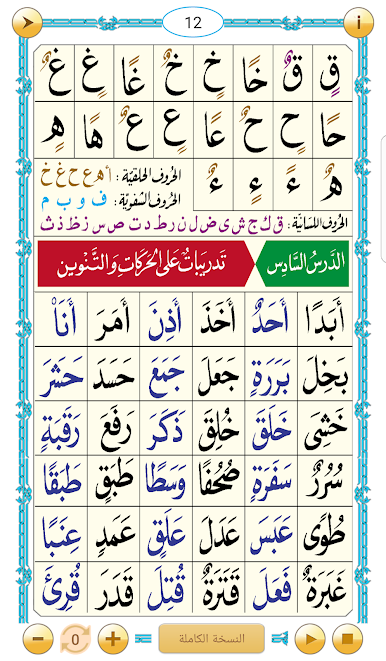 12
قٍ قٌ خًا خٍ خٌ غًا غٍ غٌ
حًا حٍ حٌ عًا عٍ عٌ هًا هٍ
هٌ ءً ءٍ ءٌ
الحُروف الحلقيّة : أ هـ ع ح غ خ
الحُروف الشفويّة : ف و ب م
الحُروف اللسانيّة : ق ك ج ش ي ض ل ن ر ط د ت ص س ز ظ ذ ث
الدَّرسُ السَّادِس
تَدرِيبَاتٌ عَلَى الحَرَكَاتِ وَالتَّنْوِين
أَبَدًا أَحَدٌ أَخَذَ أَذِنَ أَمَرَ أَنَا۠
بَخِلَ بَرَرَةٍ جَعَلَ جَمَعَ حَسَدَ حَشَرَ
خَشِيَ خَلَقَ خُلِقَ ذَكَرَ رَفَعَ رَقَبَةٍ
سُرُرٌ سَفَرَةٍ صُحُفًا وَسَطًا طَبَقٍ طَبَقًا
طُوًى عَبَسَ عَدَلَ عَلَقٍ عَمَدٍ عِنَبًا
غَبَرَةٌ فَعَلَ قَتَرَةٌ قُتِلَ قَدَرَ قُرِئَ
0
النسخة الكاملة